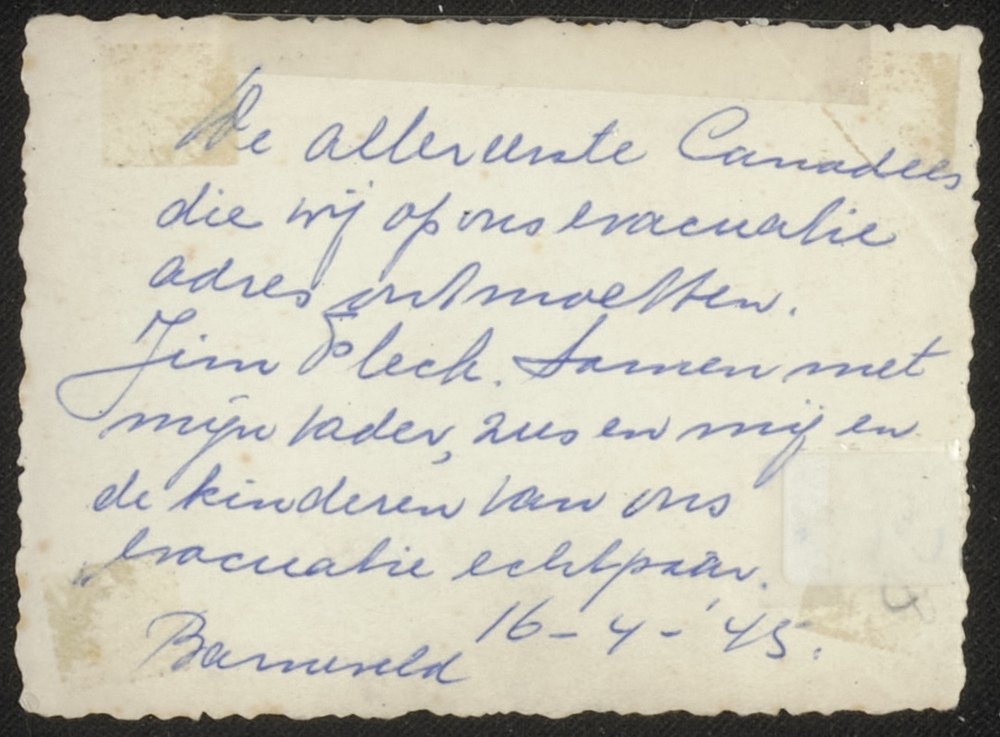 De allereerste Canadees
die wij op ons evacuatie
adres ontmoetten.
Jim Pleck. Samen met
mijn vader, zus en mij en
de kinderen van ons
evacuatie echtpaar.
16-4-'45.
Barneveld